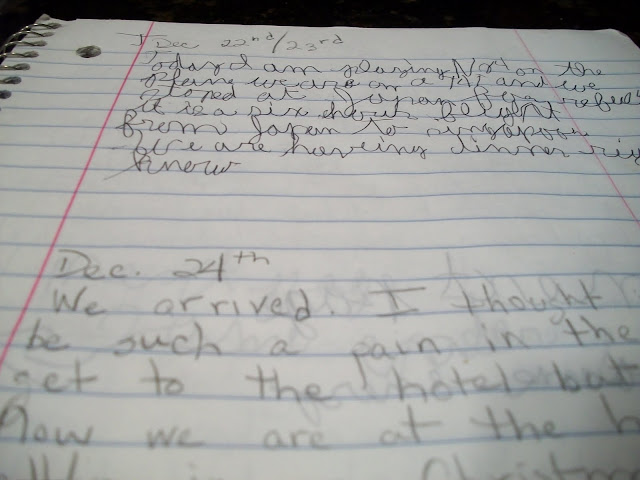 Dec 22nd/23rd
Today I am playing on the
plane we are on a and we
stoped at Japan for
it is a six hour flight
from Japan to
We are haveing dinner
know
Dec. 24th
We arrived. I thought
be such a pain in the
get to the hotel but
Now we are at the h
in Christm